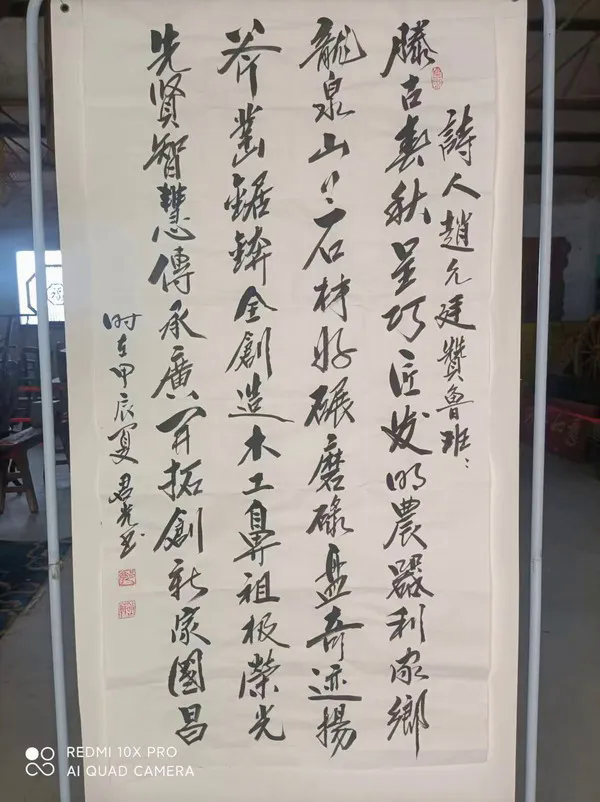 詩人趙允廷贊魯班：
滕古春秋呈巧匠发明農器利家鄉
龍泉山上石材好碾磨碌盘奇迹揚
斧凿鋸錛全創造木工鼻祖极榮光
先贤智慧傳承廣开拓創新家國昌
时在甲辰夏君光书
REDMI 10X PRO
AI QUAD CAMERA